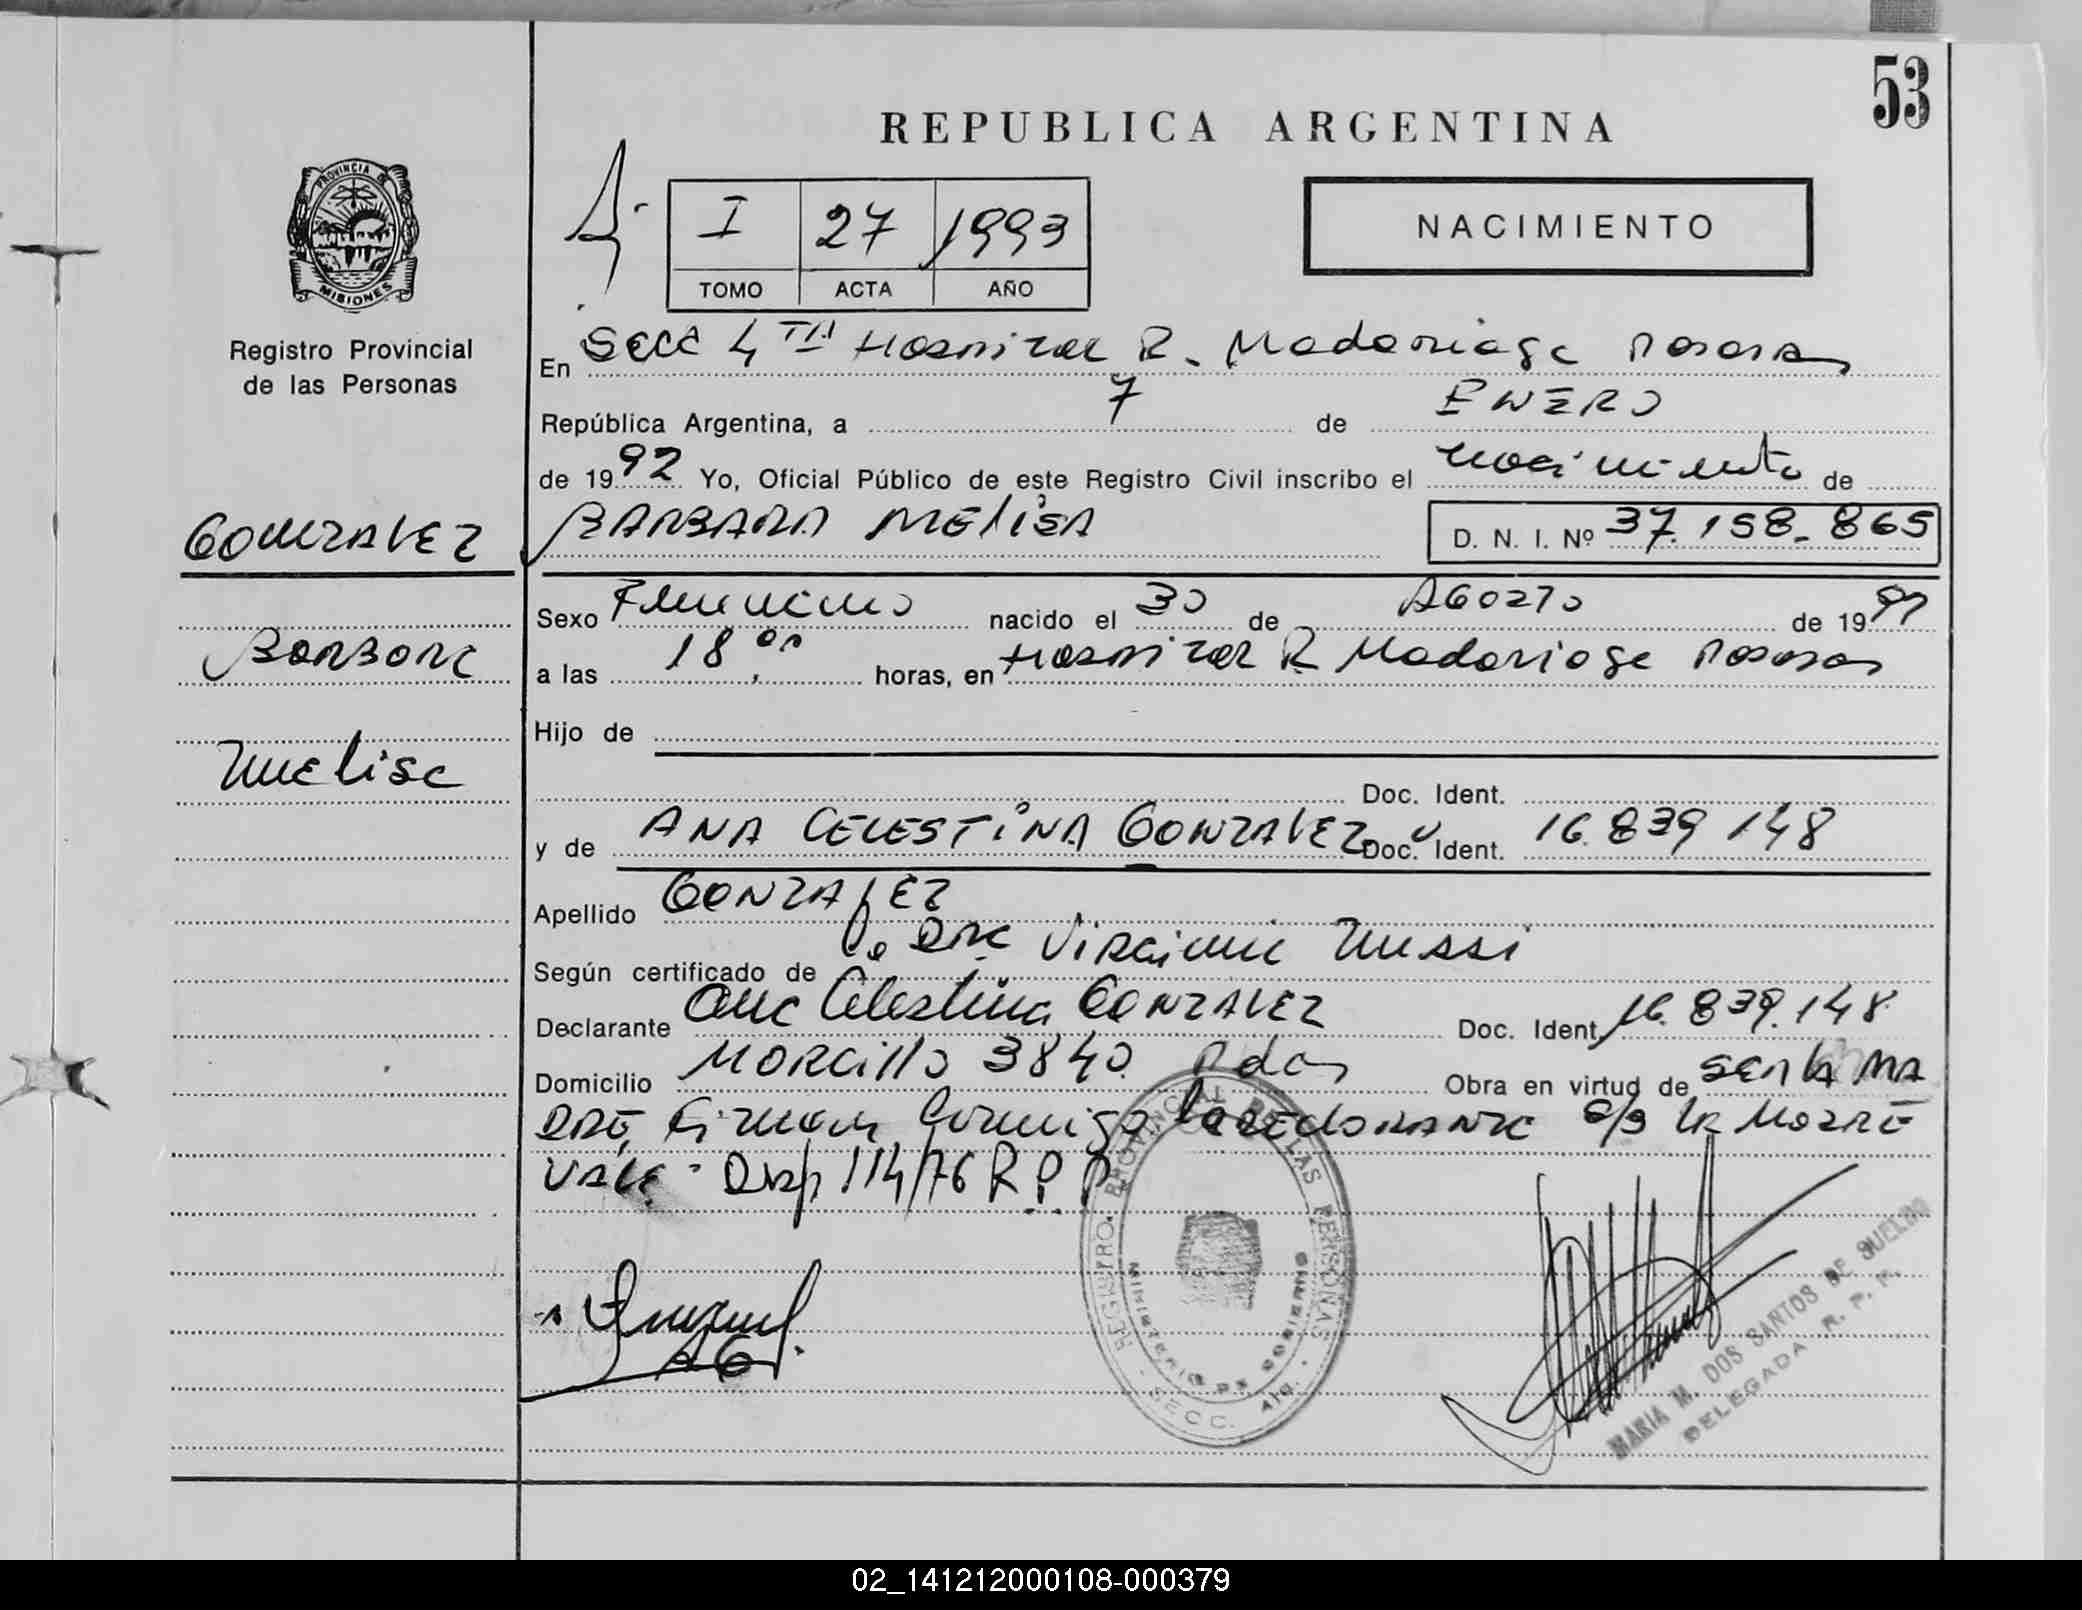 53
REPUBLICA ARGENTINA
PROVINCIA DE
MISIONES
Registro Provincial
de las Personas
I 27 1993
TOMO ACTA AÑO
NACIMIENTO
En Secc 4TA Hospital R. Madariaga Posadas
República Argentina, a 7 de ENERO
de 1992 Yo, Oficial Público de este Registro Civil inscribo el nacimiento de
GONZALEZ
BARBARA MELISA
D. N. I. Nº 37.158.865
Sexo Femenino nacido el 30 de AGOSTO de 19
Barbara
a las 18 horas, en Hospital R Madariaga Posadas
Hijo de
Melisa
Doc. Ident.
y de ANA CELESTINA GONZALEZ Doc. Ident. 16.839 148
Apellido GONZALEZ
Según certificado de Virginia
Declarante Ana Celestina GONZALEZ Doc. Ident. 16.839.148
Domicilio 3840 Pdas Obra en virtud de ser la MA
DRE, Firman conmigo la DECLARANTE la MADRE
VALE Disp 114/76 R.P.P
REGISTRO PROVINCIAL DE LAS PERSONAS
MINISTERIO DE GOBIERNO
SECC. 4ta.
MARIA M. DOS SANTOS DE SUELDO
DELEGADA R. P. P.
02_141212000108-000379